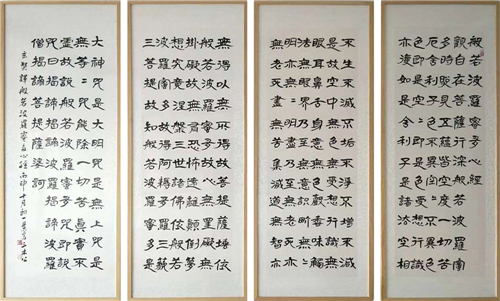 觀自在菩薩行深般若波羅蜜
多時照見五蘊皆空度一切苦
厄舍利子色不異空空不異色
色即是空空即是色受想行識
亦復如是舍利子是諸法空相
不生不滅不垢不淨不增不減
是故空中無色無受想行識無
眼耳鼻舌身意無色聲香味觸
法無眼界乃至無意識界無無
明亦無無明盡乃至無老死亦
無老死盡無苦集滅道無智亦
無得以無所得故菩提薩埵依
般若波羅蜜多故心無罣礙無
罣礙故無有恐怖遠離顛倒夢
想究竟涅槃三世諸佛依般若
波羅蜜多故得阿耨多羅三藐
三菩提故知般若波羅蜜多是
大神咒是大明咒是無上咒是
無等等咒能除一切苦真實不
虛故說般若波羅蜜多咒即說
咒曰揭諦揭諦波羅揭諦波羅
僧揭諦菩提薩婆訶
玄奘譯般若波羅蜜多心經丙申十月初一